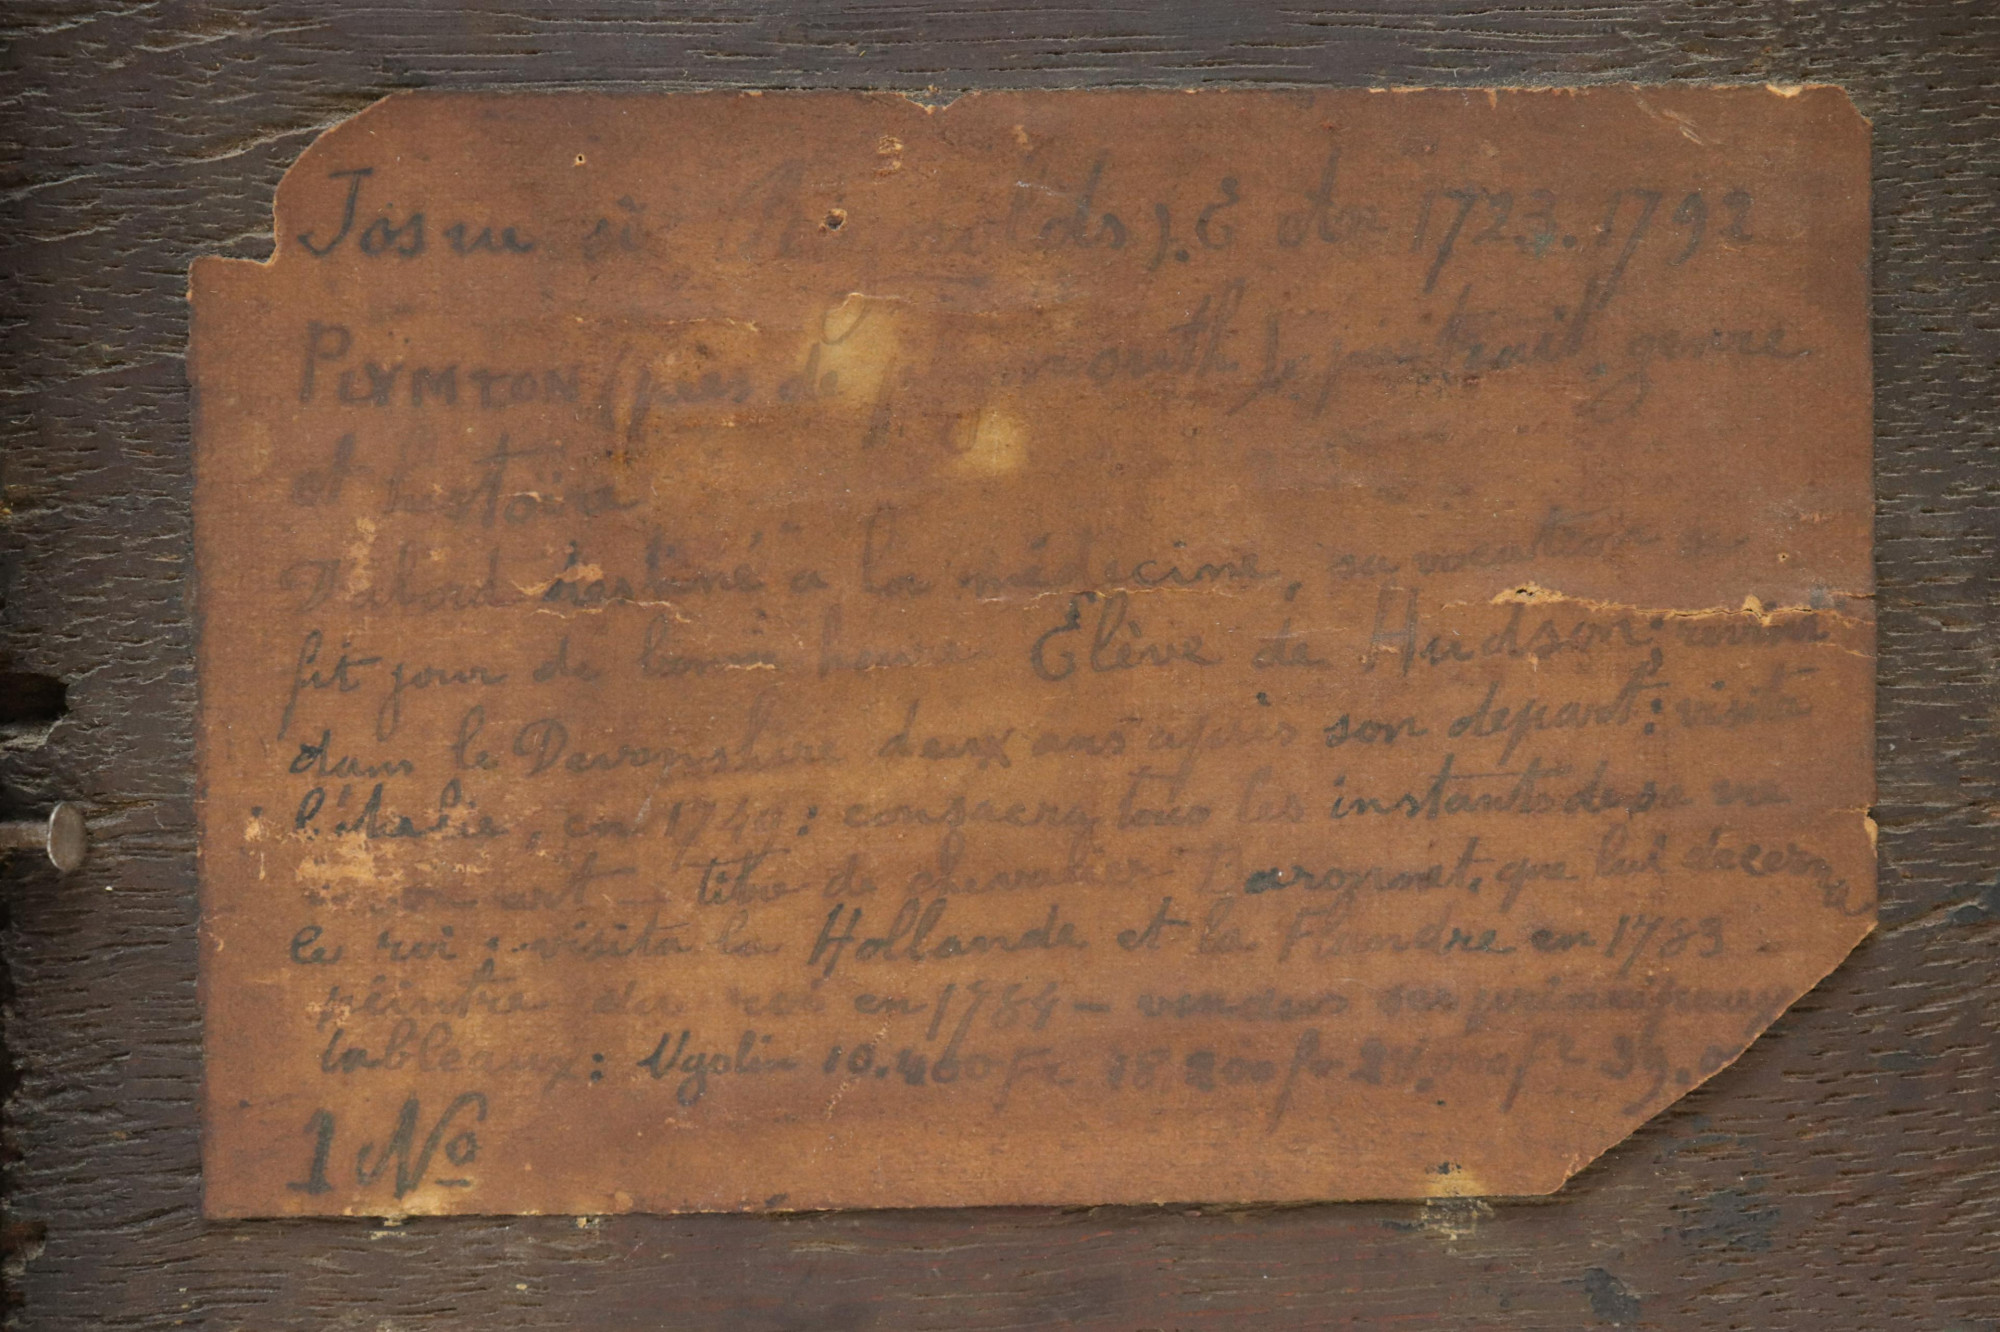 Josue Reynolds). E 1723. 1792
PLYMTON (près de plymouth), portrait, genre
et histoire
D'abord destiné à la médecine, sa vocation se
fit jour de bonne heure Elève de Hudson; revint
dans le Devonshire deux ans après son depart; visita
l'Italie, en 1749; consacra tous les instants de sa vie
à son art — titre de chevalier Baronnet, que lui décerna
le roi; visita la Hollande et la Flandre en 1783
peintre du roi en 1784 — vendus ses principaux
tableaux: Ugolin 10.400 fr 18.200 fr 24.000 fr 39.0
1 No